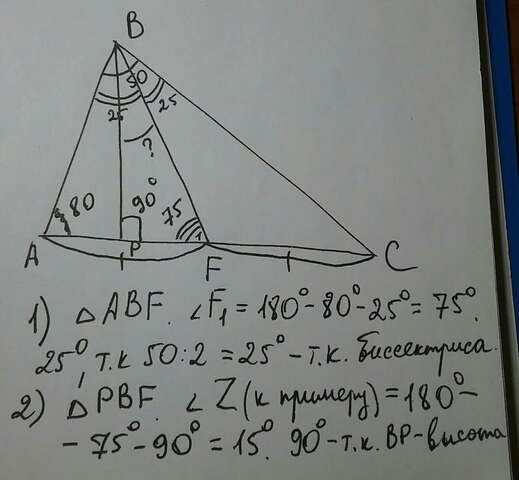 B
50
25
25
?
80
90°
75
1
A
P
F
C
1) △ABF. ∠F₁ = 180°-80°-25° = 75°.
25°, т.к 50:2 = 25° - т.к. биссектриса.
2) △PBF. ∠Z (к примеру) = 180° -
- 75° - 90° = 15°. 90° - т.к. BP - высота